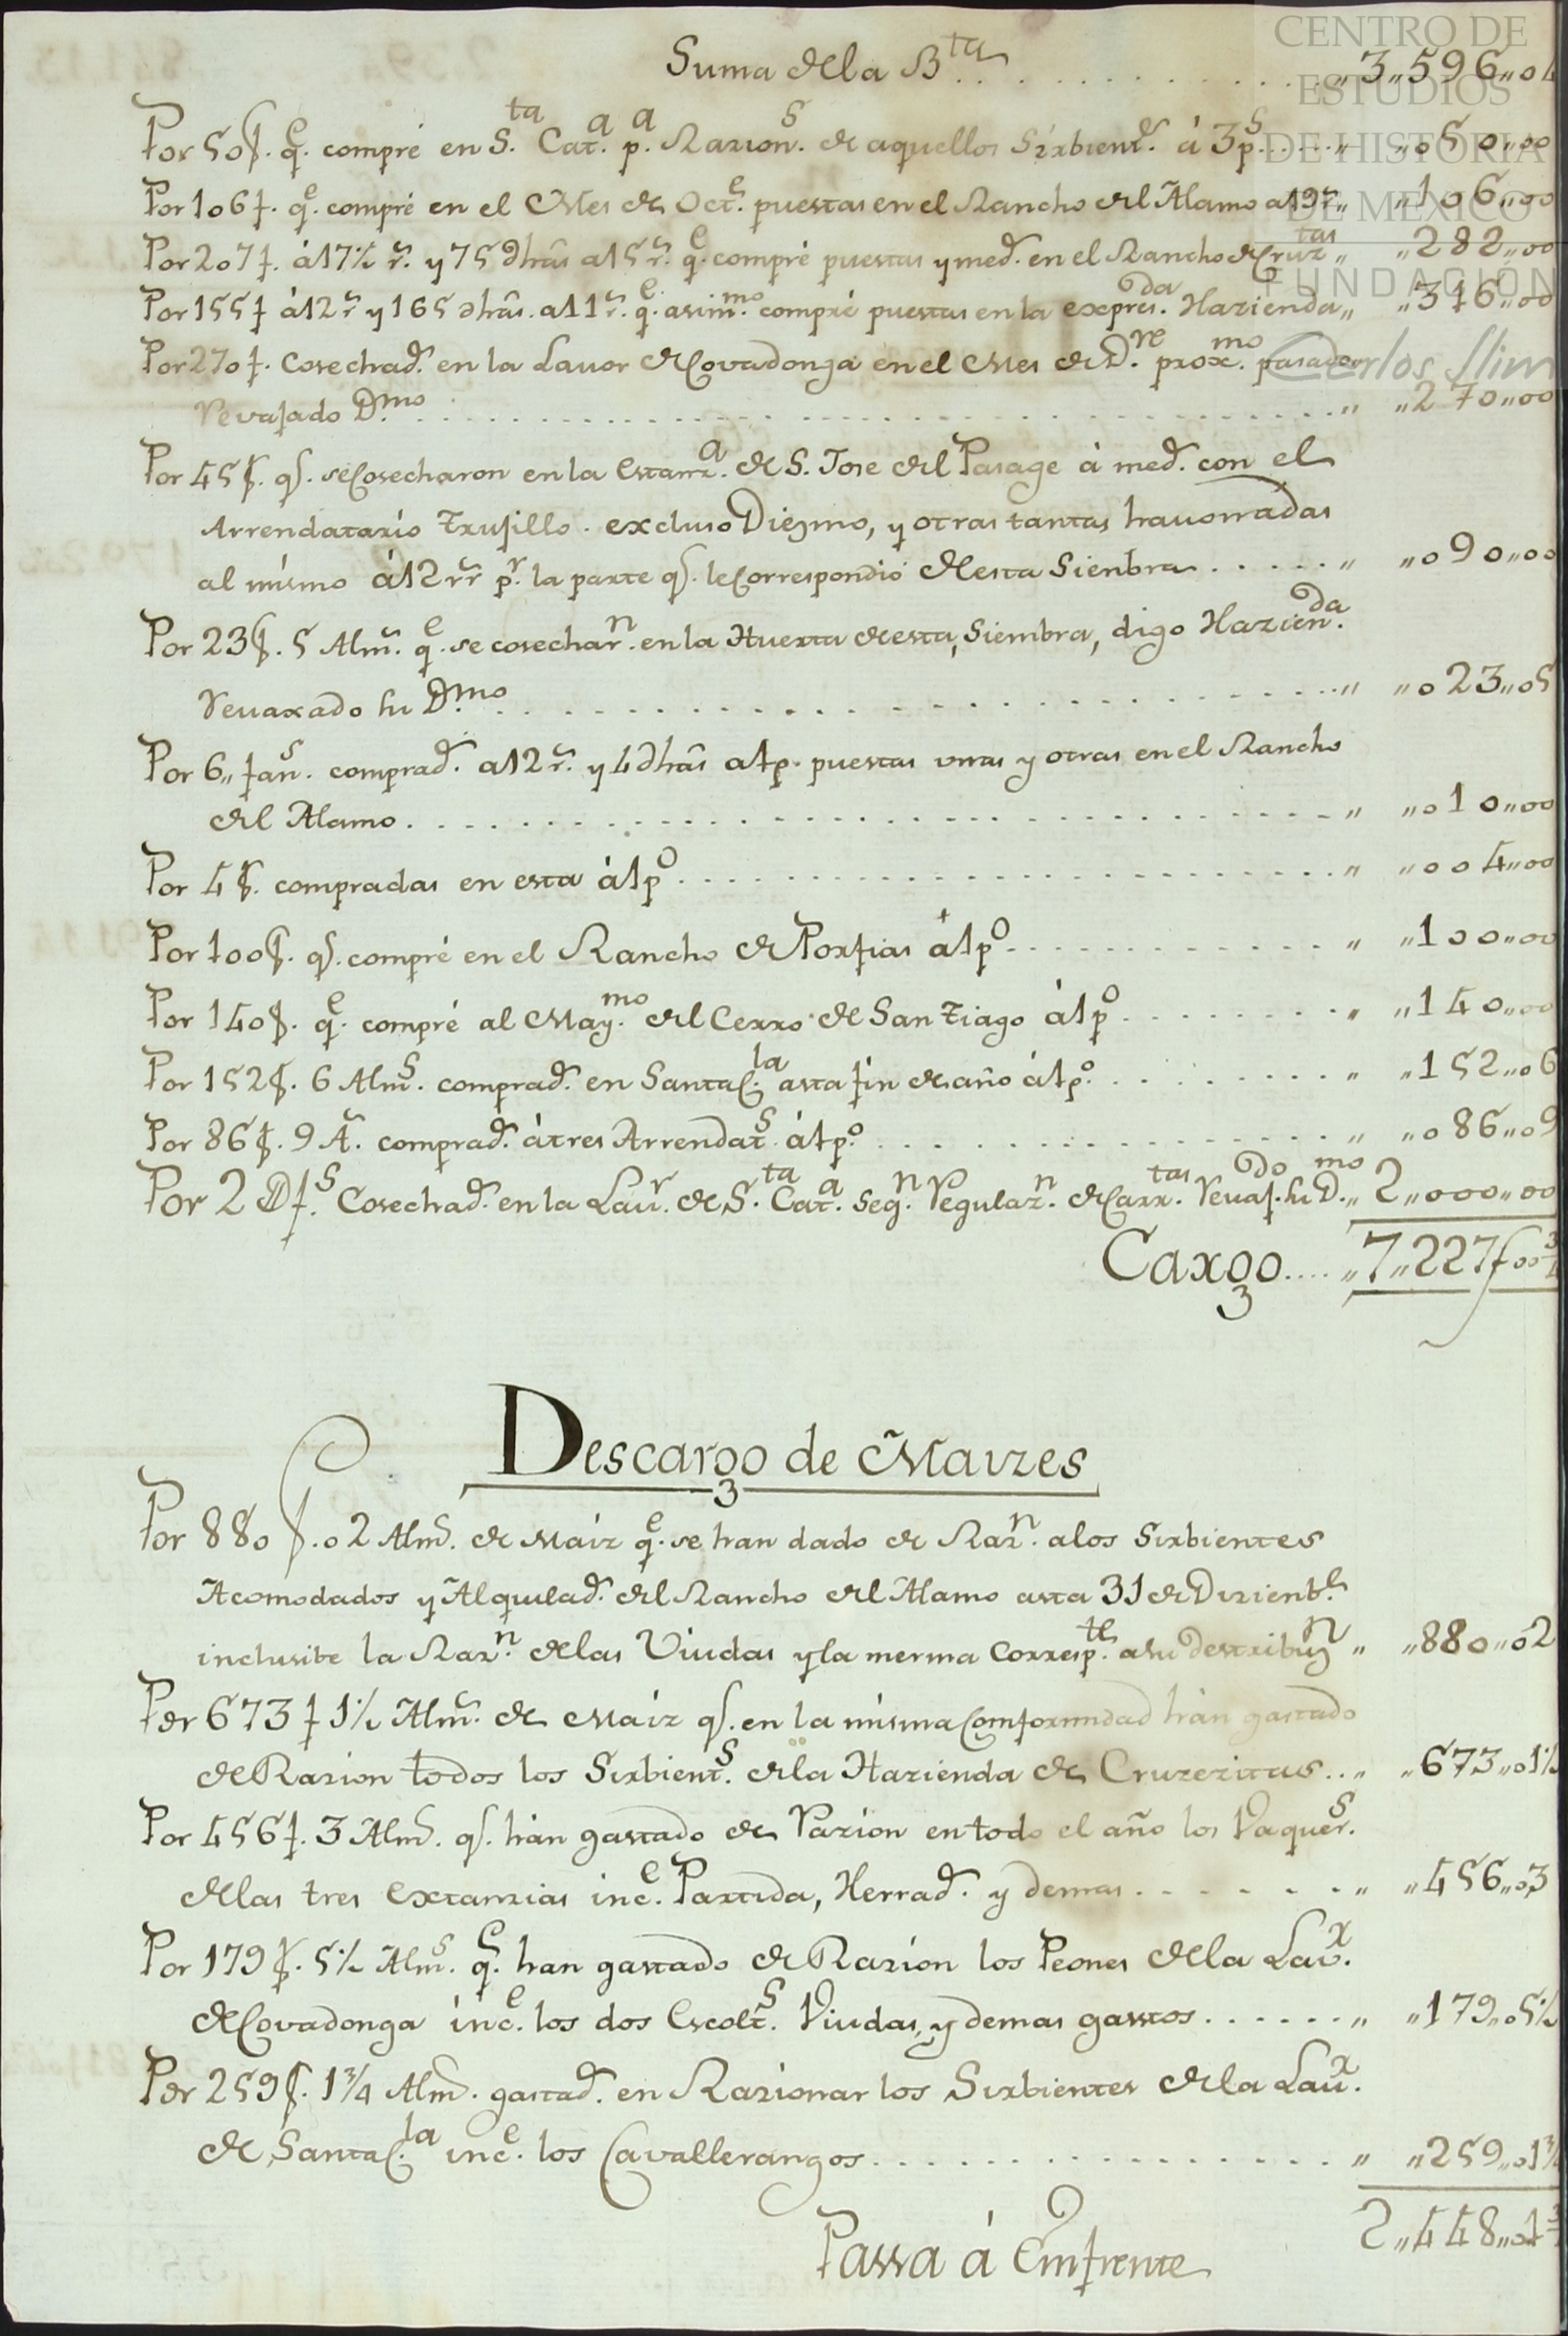 CENTRO DE
ESTUDIOS
DE HISTORIA
DE MEXICO
FUNDACIÓN
Carlos Slim
Suma dela B.ta . . . . . . . . . . . „ 3„596„04
Por 50f. q.e compré en S.ta Cat.a p.a Razion.s de aquellos Sirbient.s á 3p.s . . . . „ „050„00
Por 106f. q.e compré en el Mes de Oct.e puestas en el Rancho del Alamo a 19 r.s „ „106„00
Por 207f. á 17½ r.s y 75 dhas a 15 r.s q.e compré puestas y med.s en el Rancho de Cruz.tas „ „282„00
Por 155f á 12 r.s y 165 dhas. a 11 r.s q.e asim.mo compré puestas en la expres.da Hazienda „ „316„00
Por 270f. Cosechad.s en la Lavor de Covadonga en el Mes de D.re prox.mo pasado
revajado D.mo . . . . . . . . . . . . „ „270„00
Por 45f. q.e se Cosecharon en la Estanz.a de S. Jose del Pasage á med.s con el
Arrendatario Trujillo. excluso Diezmo, y otras tantas havonadas
al mismo á 12 rr.s p.r la parte q.e le Correspondió de esta Sienbra . . . . . „ „090„00
Por 23f. 5 Alm.s q.e se cosechar.n en la Huerta de esta, Siembra, digo Hazien.da
revaxado su D.mo . . . . . . . . . . . . „ „023„05
Por 6„ fan.s comprad.s a 12 r.s y 4 dhas a 1p. puestas unas y otras en el Rancho
del Alamo . . . . . . . . . . . . „ „010„00
Por 4f. compradas en esta á 1p.o . . . . . . . . . . . . „ „004„00
Por 100f. q.e compré en el Rancho de Porfias á 1p.o . . . . . . . . „ „100„00
Por 140f. q.e compré al May.mo del Cerro de San Tiago á 1p.o . . . . . . . . „ „140„00
Por 152f. 6 Alm.s comprad.s en Santa C.la asta fin de año á 1p.o . . . . . . . „ „152„06
Por 86f. 9 A.s comprad.s á tres Arrendat.s á 1p.o . . . . . . . . . „ „086„09
Por 2 Ⅾf.s Cosechad.s en la Lav.r de S.ta Cat.a seg.n Regulaz.n de Carr.tas revaj.do su D.mo „ 2„000„00
Cargo . . . . „ 7„227f00¾
Descargo de Maizes
Por 880f. 02 Alm.s de Maiz q.e se han dado de Raz.n alos Sirbientes
Acomodados y Alquilad.s del Rancho del Alamo asta 31 de Dizienb.e
inclusibe la Raz.n de las Viudas y la merma Corresp.te a su destribuz.n „ „880„02
Por 673f 1½ Alm.s de Maiz q.e en la misma Comformidad hán gastado
de Razion todos los Sirbient.s de la Hazienda de Cruzezitas . . „ „673„01½
Por 456f. 3 Alm.s q.e hán gastado de Razion en todo el año los Vaquer.s
de las tres Extanzias inc.e Partida, Herrad.s y demas . . . . . . „ „456„03
Por 179f. 5½ Alm.s q.e han gastado de Razion los Peones de la Lav.r
de Covadonga inc.e los dos Escolt.s Viudas, y demas gastos . . . . . . „ „179„05½
Por 259f. 1¾ Alm.s gastad.s en Razionar los Sirbientes de la Lav.r
de Santa C.la inc.e los Cavallerangos . . . . . . . . . . . „ „259„01¾
2„448„01¾
Passa á Emfrente